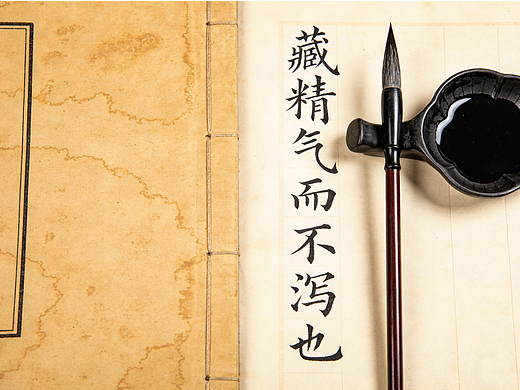 藏精气而不泻也